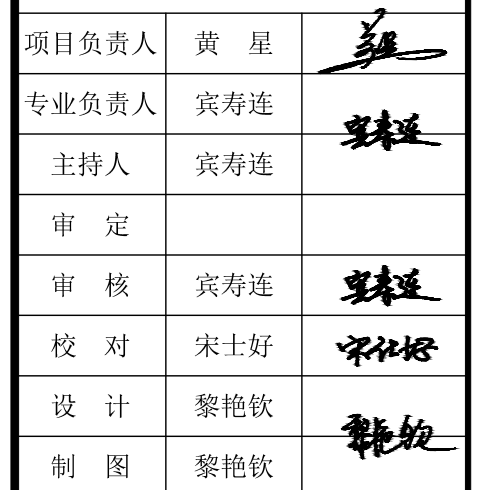 项目负责人 黄 星
专业负责人 宾寿连
宾寿连
主持人 宾寿连
审 定
审 核 宾寿连 宾寿连
校 对 宋士好 宋仕好
设 计 黎艳钦
黎艳钦
制 图 黎艳钦